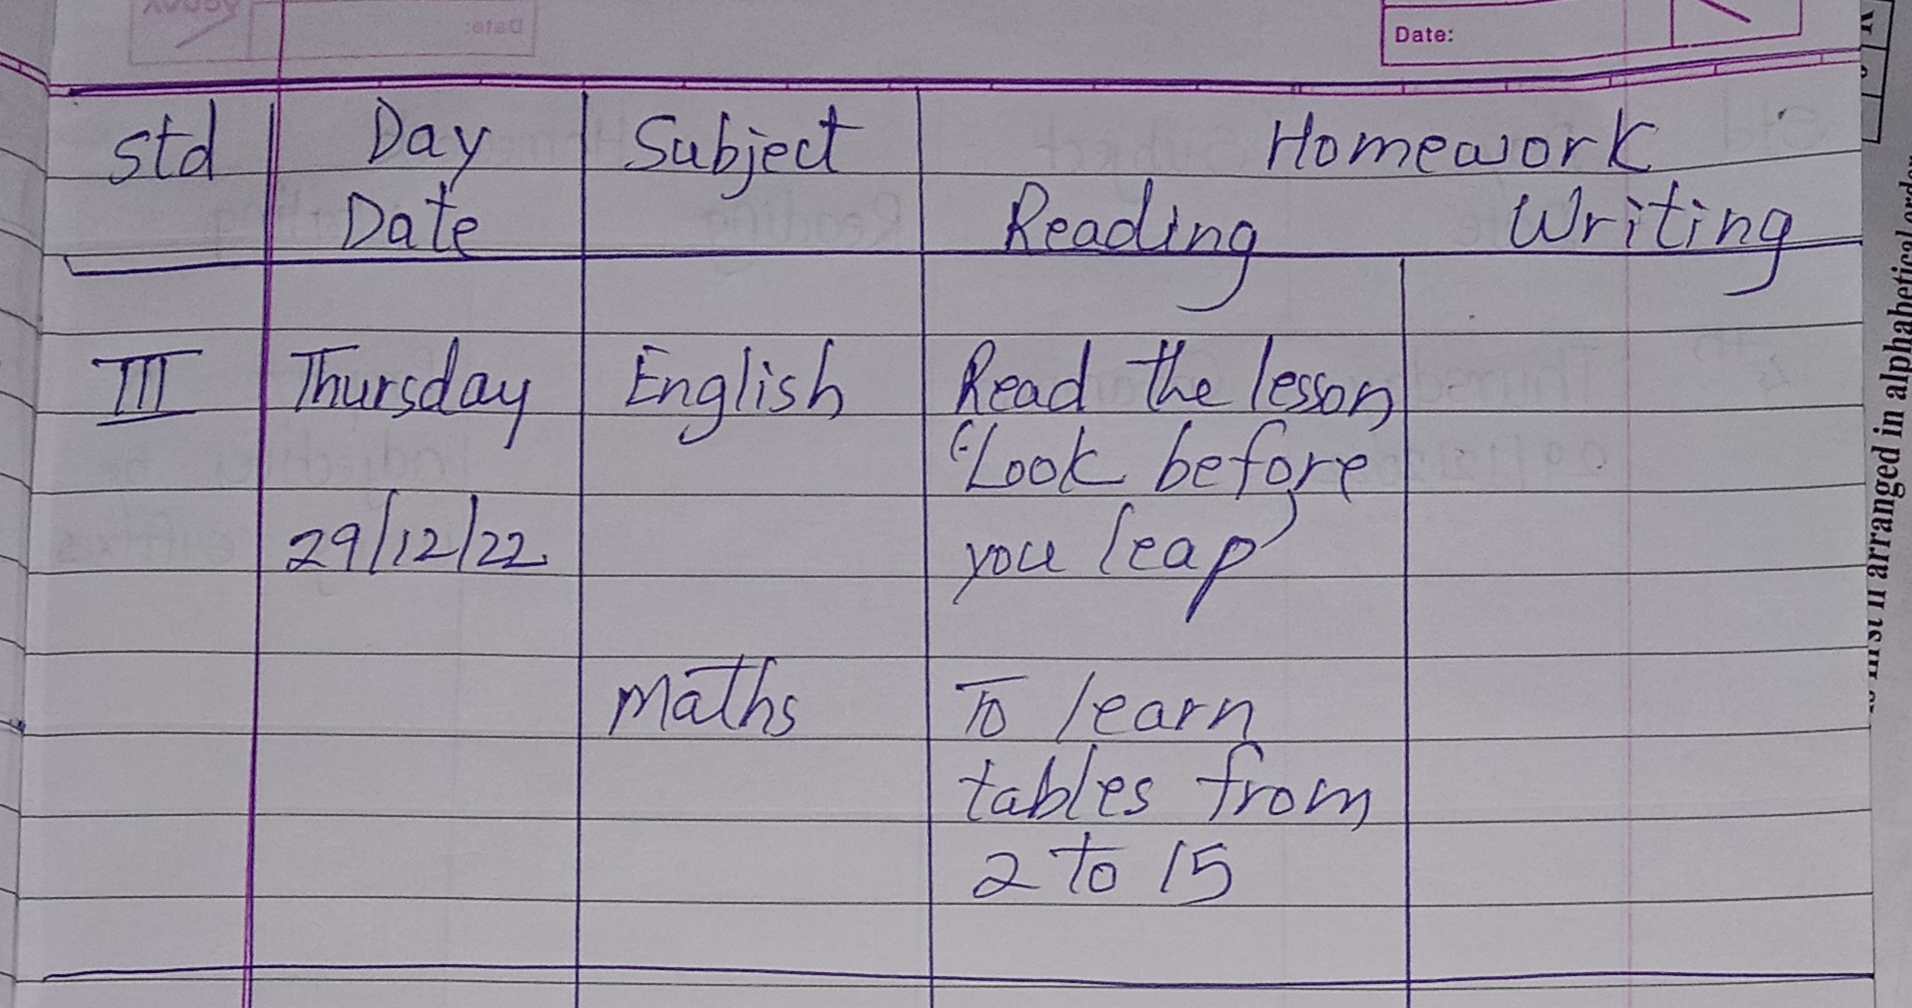 Date:
Std Day Subject Homework
Date Reading Writing
III Thursday English Read the lesson
"Look before
29/12/22 you leap"
Maths To learn
tables from
2 to 15
arranged in alphabetical order